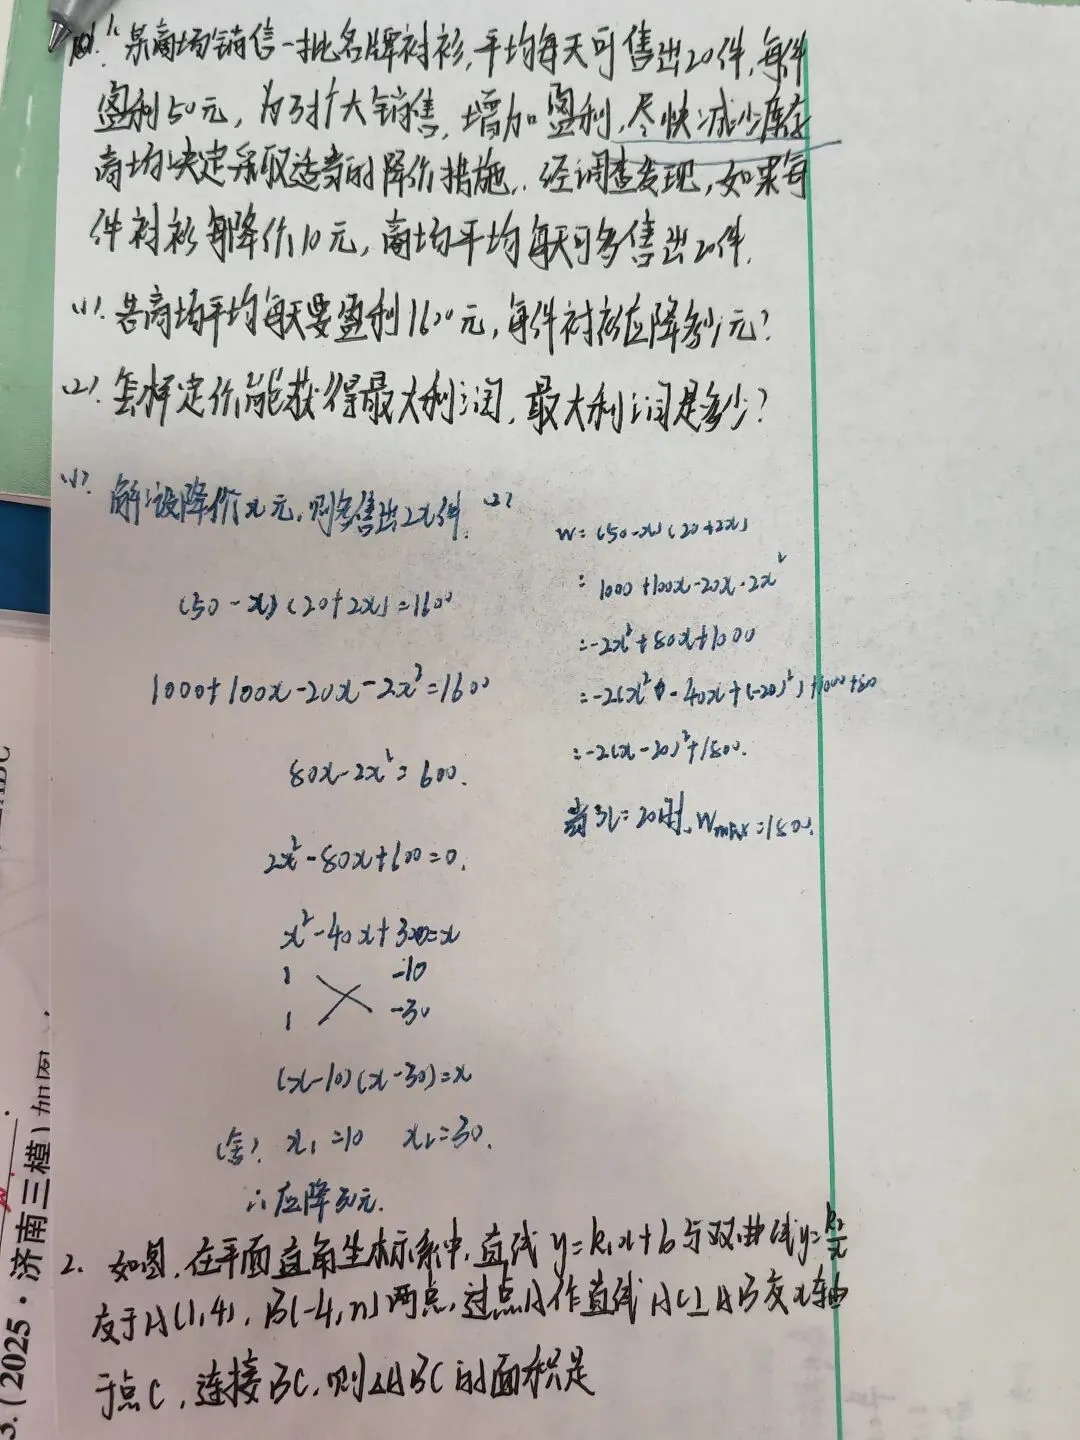 1. 某商场销售一批名牌衬衫,平均每天可售出20件,每件
盈利50元,为了扩大销售,增加盈利,尽快减少库存
商场决定采取适当的降价措施,经调查发现,如果每
件衬衫每降价10元,商场平均每天可多售出20件.
(1).若商场平均每天要盈利1600元,每件衬衫应降多少元?
(2).怎样定价能获得最大利润,最大利润是多少?
(1). 解:设降价x元,则多售出2x件.
(50-x)(20+2x)=1600
1000+100x-20x-2x²=1600
80x-2x²=600.
2x²-80x+600=0.
x²-40x+300=x
1 -10
1 -30
(x-10)(x-30)=x
(舍). x₁=10 x₂=30.
∴应降30元.
(2)
W=(50-x)(20+2x)
=1000+100x-20x-2x²
=-2x²+80x+1000
=-2(x²-40x+(-20)²)+1000+80
=-2(x-20)²+1800.
当x=20时,Wmax=1800.
2. 如图,在平面直角坐标系中,直线y=k₁x+b与双曲线y=k₂/x
交于A(1,4),B(-4,n)两点,过点A作直线AC⊥AB交x轴
于点C,连接BC,则△ABC的面积是
3.(2025·济南三模)如图